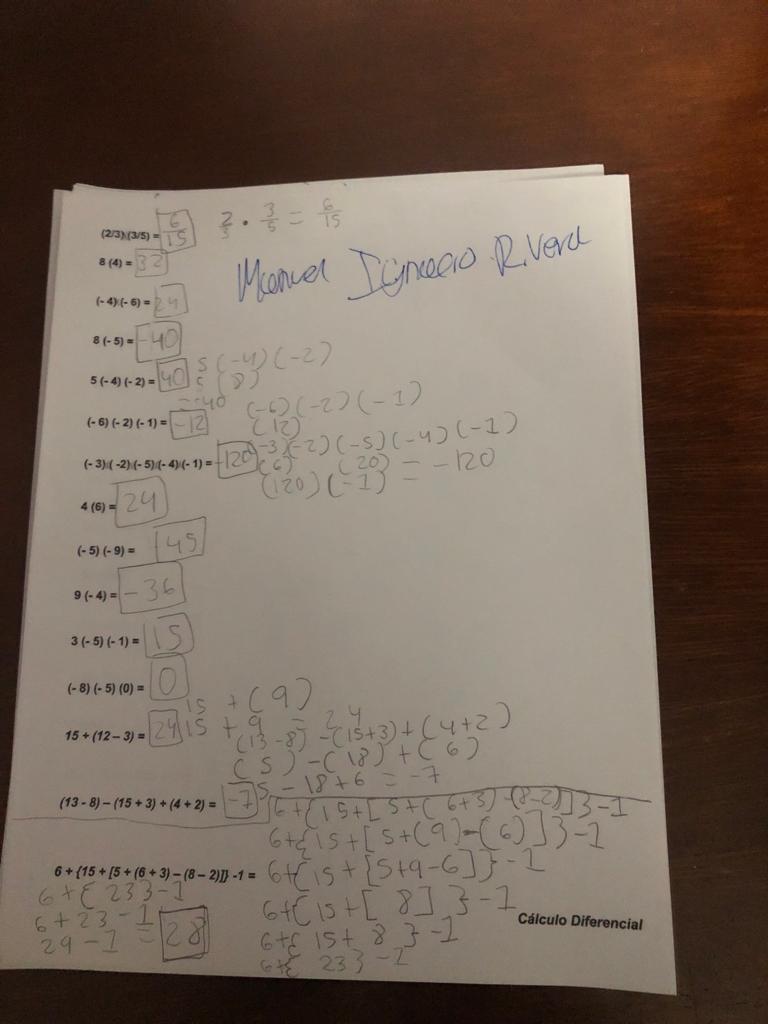 (2/3)(3/5) = 6/15 2/3 · 3/5 = 6/15
8 (4) = 32
Manuel Ignacio Rivera
(- 4)(- 6) = 24
8 (- 5) = -40
5 (-4) (-2)
5 (- 4) (- 2) = 40 5 (8)
-40
(-6) (-2) (-1)
(- 6) (- 2) (- 1) = -12 (12)
(-3)(-2)(-5)(-4)(-1)
(- 3)( -2)(- 5)(- 4)(- 1) = -120 (6) (20) = -120
(120)(-1) =
4 (6) = 24
(- 5) (- 9) = 45
9 (- 4) = -36
3 (- 5) (- 1) = 15
(- 8) (- 5) (0) = 0
15 + (9)
15 + (12 – 3) = 24 15 + 9 = 24
(13-8) - (15+3) + (4+2)
(5) - (18) + (6)
5 - 18 + 6 = -7
(13 - 8) – (15 + 3) + (4 + 2) = -7
6+{15+[5+(6+3)-(8-2)]}-1
6+{15+[5+(9)-(6)]}-1
6 + {15 + [5 + (6 + 3) – (8 – 2)]} -1 = 6+{15+[5+9-6]}-1
6+{23}-1 6+{15+[8]}-1
Cálculo Diferencial
6+23-1 6+{15+8}-1
29-1 = 28 6+{23}-1